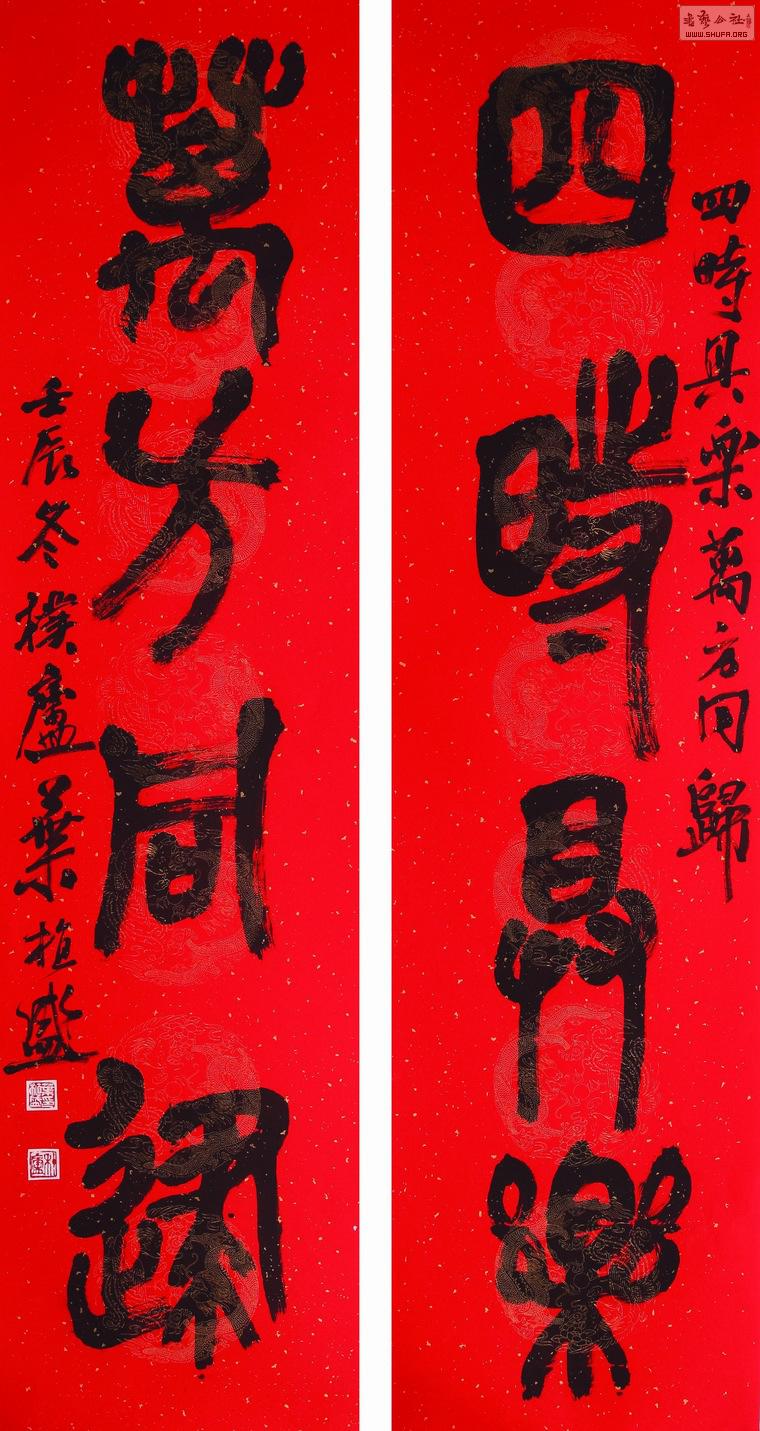 四時具樂萬方同歸
四時具樂
萬方同歸
壬辰冬樸廬葉植盛
WWW.SHUFA.ORG